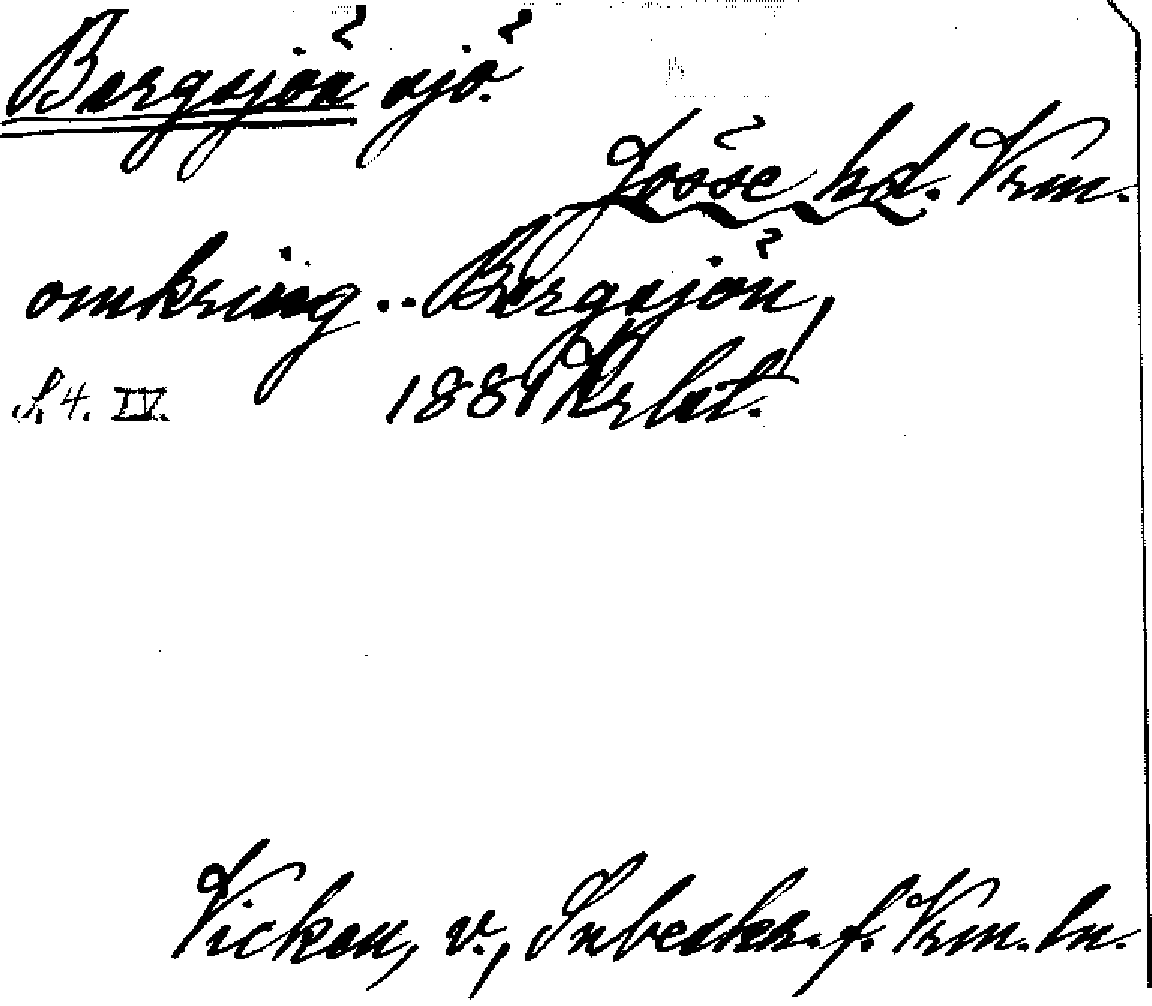 Bergsjön sjö.
Jösse hd. Vrm.
omkring .. Bergsjön,
S. 4. IV. 1881
Vicken, v., Snbeskr. f. Vrm. ln.